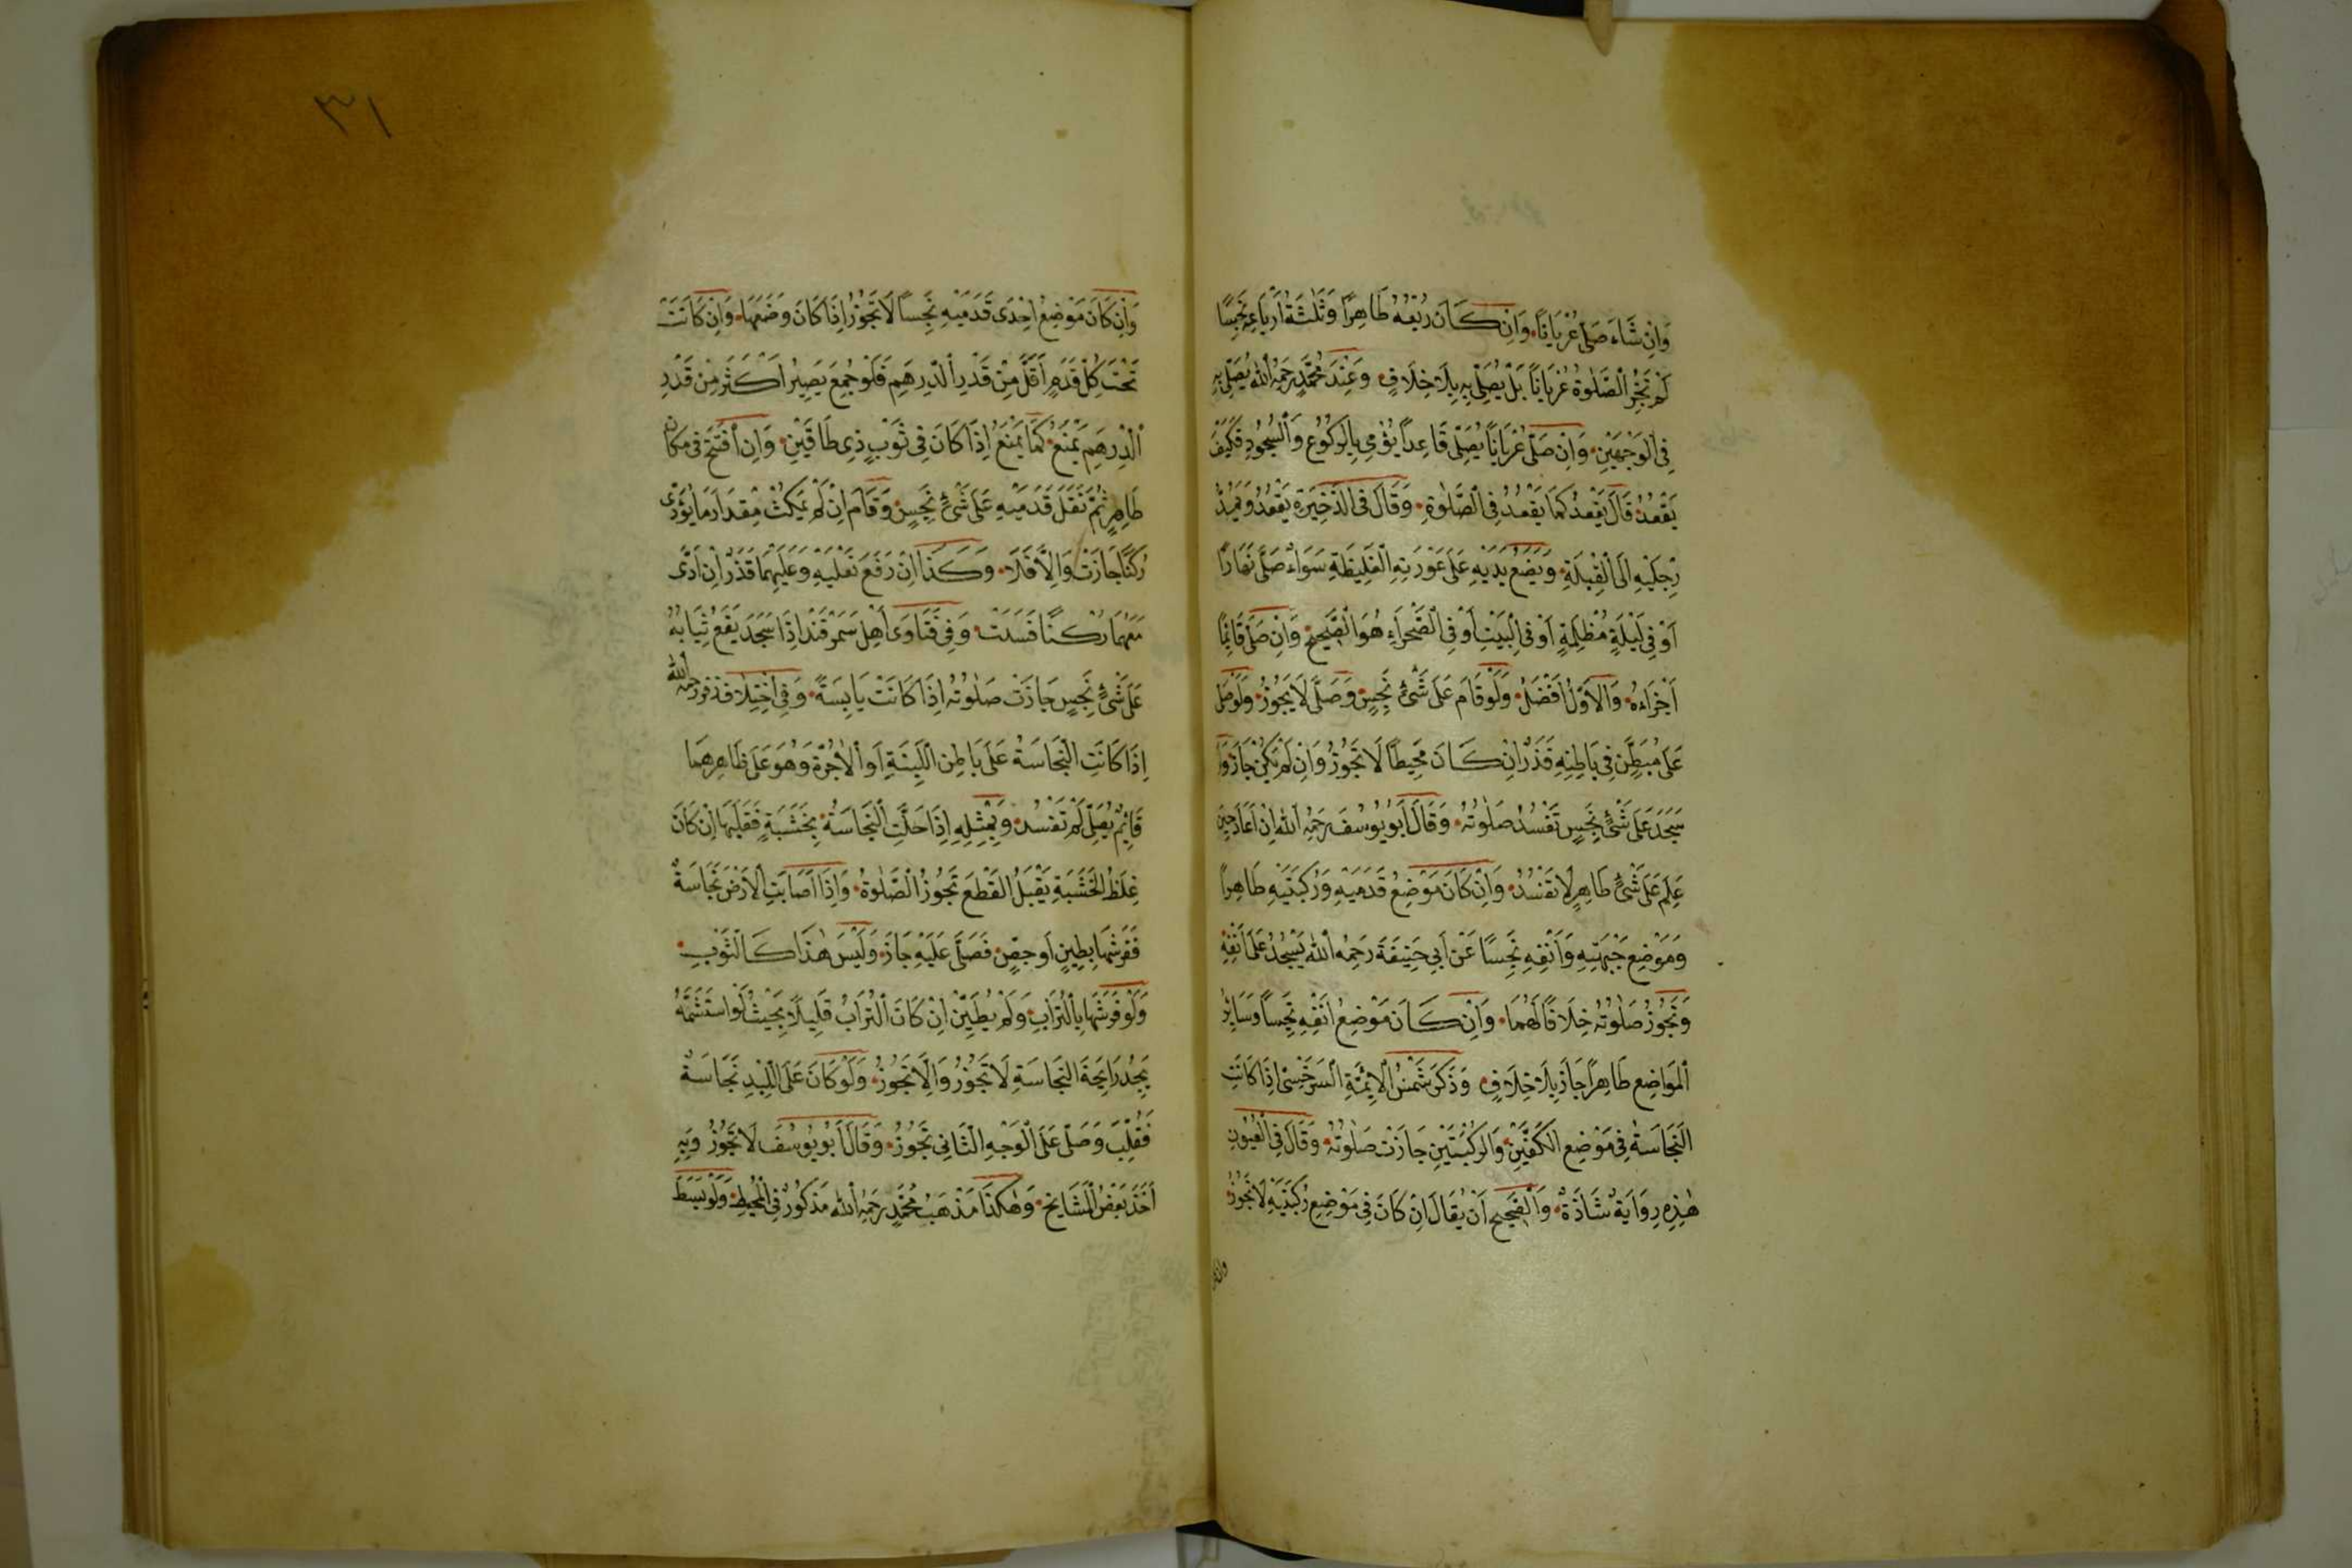 وَاِنْ شَاءَ صَلّٰى عُرْيَانًا وَاِنْ كَانَ رُبْعُهُ طَاهِرًا وَثَلٰثَةُ اَرْبَاعِهِ نَجِسًا
لَمْ تَجُزِ الصَّلٰوةُ عُرْيَانًا بَلْ يُصَلِّى بِهِ بِلَا خِلَافٍ وَعِنْدَ مُحَمَّدٍ رَحِمَهُ اللهُ يُصَلِّى بِهِ
فِى الْوَجْهَيْنِ وَاِنْ صَلّٰى عُرْيَانًا يُصَلِّى قَاعِدًا يُؤْمِى بِالرُّكُوْعِ وَالسُّجُوْدِ فَكَيْفَ
يَقْعُدُ قَالَ يَقْعُدُ كَمَا يَقْعُدُ فِى الصَّلٰوةِ وَقَالَ فِى الذَّخِيْرَةِ يَقْعُدُ وَيَمُدُّ
رِجْلَيْهِ اِلَى الْقِبْلَةِ وَيَضَعُ يَدَيْهِ عَلٰى عَوْرَتِهِ الْغَلِيْظَةِ سَوَاءٌ صَلّٰى نَهَارًا
اَوْ فِى لَيْلَةٍ مُظْلِمَةٍ اَوْ فِى الْبَيْتِ اَوْ فِى الصَّحْرَاءِ هُوَ الصَّحِيْحُ وَاِنْ صَلّٰى قَائِمًا
اَجْزَاءَهُ وَالْاَوَّلُ اَفْضَلُ وَلَوْ قَامَ عَلٰى شَىْءٍ نَجِسٍ وَصَلّٰى لَا يَجُوْزُ وَلَوْ صَلّٰى
عَلٰى مُبَطَّنٍ فِى بَاطِنِهِ قَذَرٌ اِنْ كَانَ مَخِيْطًا لَا تَجُوْزُ وَاِنْ لَمْ يَكُنْ جَازَ وَلَوْ
سَجَدَ عَلٰى شَىْءٍ نَجِسٍ تَفْسُدُ صَلٰوتُهُ وَقَالَ اَبُو يُوْسُفَ رَحِمَهُ اللهُ اِنْ اَعَادَ حِيْنَ
عَلِمَ عَلٰى شَىْءٍ طَاهِرٍ لَا تَفْسُدُ وَاِنْ كَانَ مَوْضِعُ قَدَمَيْهِ وَرُكْبَتَيْهِ طَاهِرًا
وَمَوْضِعُ جَبْهَتِهِ وَاَنْفِهِ نَجِسًا عَنْ اَبِى حَنِيْفَةَ رَحِمَهُ اللهُ يَسْجُدُ عَلٰى اَنْفِهِ
وَتَجُوْزُ صَلٰوتُهُ خِلَافًا لَهُمَا وَاِنْ كَانَ مَوْضِعُ اَنْفِهِ نَجِسًا وَسَايِرُ
الْمَوَاضِعِ طَاهِرًا جَازَ بِلَا خِلَافٍ وَذَكَرَ شَمْسُ الْاَئِمَّةِ السَّرَخْسِىُّ اِذَا كَانَتِ
النَّجَاسَةُ فِى مَوْضِعِ الْكَفَّيْنِ وَالرُّكْبَتَيْنِ جَازَتْ صَلٰوتُهُ وَقَالَ فِى الْعُيُوْنِ
هٰذِهِ رِوَايَةٌ شَاذَّةٌ وَالصَّحِيْحُ اَنْ يُقَالَ اِنْ كَانَ فِى مَوْضِعِ رُكْبَتَيْهِ لَا تَجُوْزُ
وان كان
٣١
وَاِنْ كَانَ مَوْضِعُ اِحْدٰى قَدَمَيْهِ نَجِسًا لَا تَجُوْزُ اِذَا كَانَ وَضَعَهَا وَاِنْ كَانَتْ
تَحْتَ كُلِّ قَدَمٍ اَقَلَّ مِنْ قَدْرِ الدِّرْهَمِ فَلَوْ جُمِعَ يَصِيْرُ اَكْثَرَ مِنْ قَدْرِ
الدِّرْهَمِ يَمْنَعُ كَمَا يَمْنَعُ اِذَا كَانَ فِى ثَوْبٍ ذِى طَاقَيْنِ وَاِنِ افْتَتَحَ فِى مَكَانٍ
طَاهِرٍ ثُمَّ نَقَلَ قَدَمَيْهِ عَلٰى شَىْءٍ نَجِسٍ وَقَامَ اِنْ لَمْ يَمْكُثْ مِقْدَارَ مَا يُؤَدِّى
رُكْنًا جَازَتْ وَاِلَّا فَلَا وَكَذَا اِنْ رَفَعَ نَعْلَيْهِ وَعَلَيْهِمَا قَذَرٌ اِنْ اَدّٰى
مَعَهُمَا رُكْنًا فَسَدَتْ وَفِى فَتَاوٰى اَهْلِ سَمَرْقَنْدَ اِذَا سَجَدَ يَقَعُ ثِيَابُهُ
عَلٰى شَىْءٍ نَجِسٍ جَازَتْ صَلٰوتُهُ اِذَا كَانَتْ يَابِسَةً وَفِى اخْتِلَافِ زفر رحمه الله
اِذَا كَانَتِ النَّجَاسَةُ عَلٰى بَاطِنِ اللَّبِنَةِ اَوِ الْاٰجُرَّةِ وَهُوَ عَلٰى ظَاهِرِهَا
قَائِمٌ يُصَلِّى لَمْ تَفْسُدْ وَبِمِثْلِهِ اِذَا حَلَّتِ النَّجَاسَةُ بِخَشَبَةٍ فَقَلَبَهَا اِنْ كَانَ
غِلَظُ الْخَشَبَةِ يَقْبَلُ الْقَطْعَ تَجُوْزُ الصَّلٰوةُ وَاِذَا اَصَابَتِ الْاَرْضَ نَجَاسَةٌ
فَفَرَشَهَا بِطِيْنٍ اَوْ جِصٍّ فَصَلّٰى عَلَيْهِ جَازَ وَلَيْسَ هٰذَا كَالثَّوْبِ
وَلَوْ فَرَشَهَا بِالتُّرَابِ وَلَمْ يُطَيِّنْ اِنْ كَانَ التُّرَابُ قَلِيْلًا بِحَيْثُ لَوِ اسْتَشَمَّهُ
يَجِدُ رَايِحَةَ النَّجَاسَةِ لَا تَجُوْزُ وَاِلَّا تَجُوْزُ وَلَوْ كَانَ عَلَى اللِّبْدِ نَجَاسَةٌ
فَقُلِبَ وَصَلّٰى عَلَى الْوَجْهِ الثَّانِى تَجُوْزُ وَقَالَ اَبُو يُوْسُفَ لَا تَجُوْزُ وَبِهِ
اَخَذَ بَعْضُ الْمَشَايِخِ وَهٰكَذَا مَذْهَبُ مُحَمَّدٍ رَحِمَهُ اللهُ مَذْكُوْرٌ فِى الْمُحِيْطِ وَلَوْ بَسَطَ